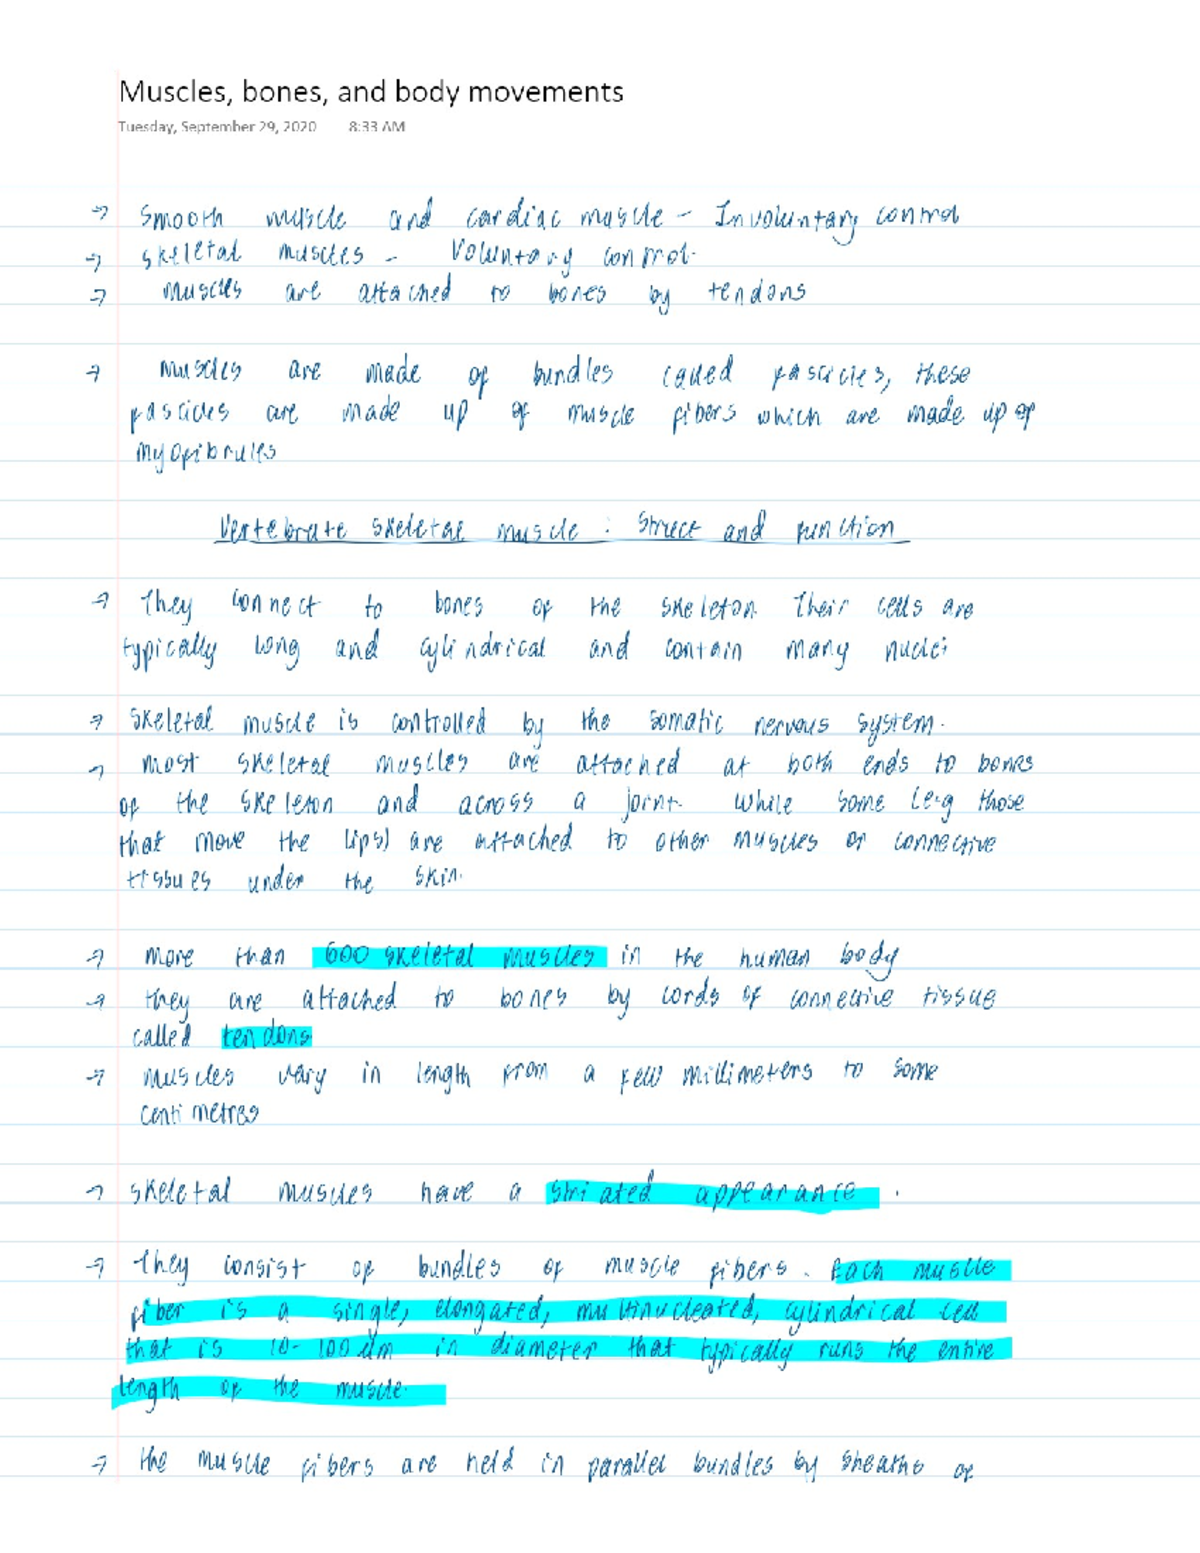 Muscles, bones, and body movements
Tuesday, September 29, 2020 8:33 AM
→ Smooth muscle and cardiac muscle - Involuntary control
→ skeletal muscles - Voluntary control.
→ muscles are attached to bones by tendons
→ muscles are made of bundles called fascicles, these
fascicles are made up of muscle fibers which are made up of
myofibrules
Vertebrate skeletal muscle : Struct and function
→ They connect to bones of the skeleton. Their cells are
typically long and cylindrical and contain many nuclei
→ Skeletal muscle is controlled by the somatic nervous system.
→ most skeletal muscles are attached at both ends to bones
of the skeleton and across a joint. While some (e.g those
that move the lips) are attached to other muscles or connective
tissues under the skin.
→ more than 600 skeletal muscles in the human body
→ they are attached to bones by cords of connective tissue
called tendons
→ muscles vary in length from a few millimeters to some
centimetres
→ skeletal muscles have a striated appearance .
→ They consist of bundles of muscle fibers. Each muscle
fiber is a single, elongated, multinucleated, cylindrical cell
that is 10-100 μm in diameter that typically runs the entire
length of the muscle.
→ the muscle fibers are held in parallel bundles by sheaths of